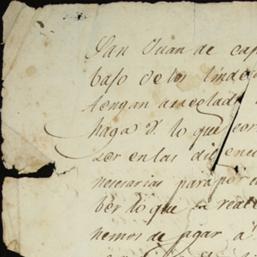 San Juan de cap
baso de los linde
tengan asolada
haga V. lo que cor
zer en las di
nesesarias para
ber lo que se
hemos de pagar á